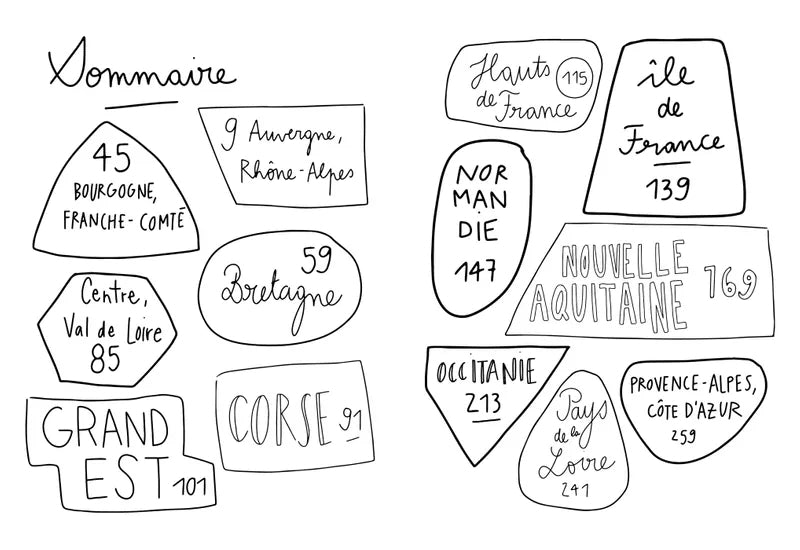 Sommaire
9 Auvergne,
Rhône-Alpes
45
BOURGOGNE,
FRANCHE-COMTÉ
59
Bretagne
Centre,
Val de Loire
85
CORSE 91
GRAND
EST 101
Hauts 115
de France
île
de
France
139
NOR
MAN
DIE
147
NOUVELLE
AQUITAINE 169
OCCITANIE
213
Pays
de la
Loire
241
PROVENCE-ALPES,
CÔTE D'AZUR
259